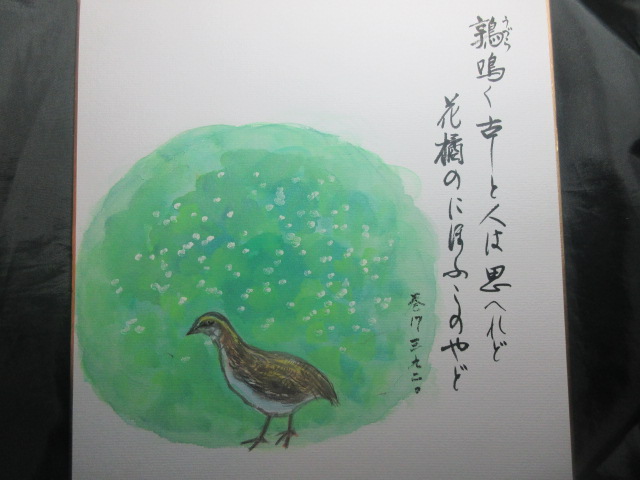 うづら
鶉鳴く古しと人は思へれど
花橘のにほふこのやど
巻17 三九二〇